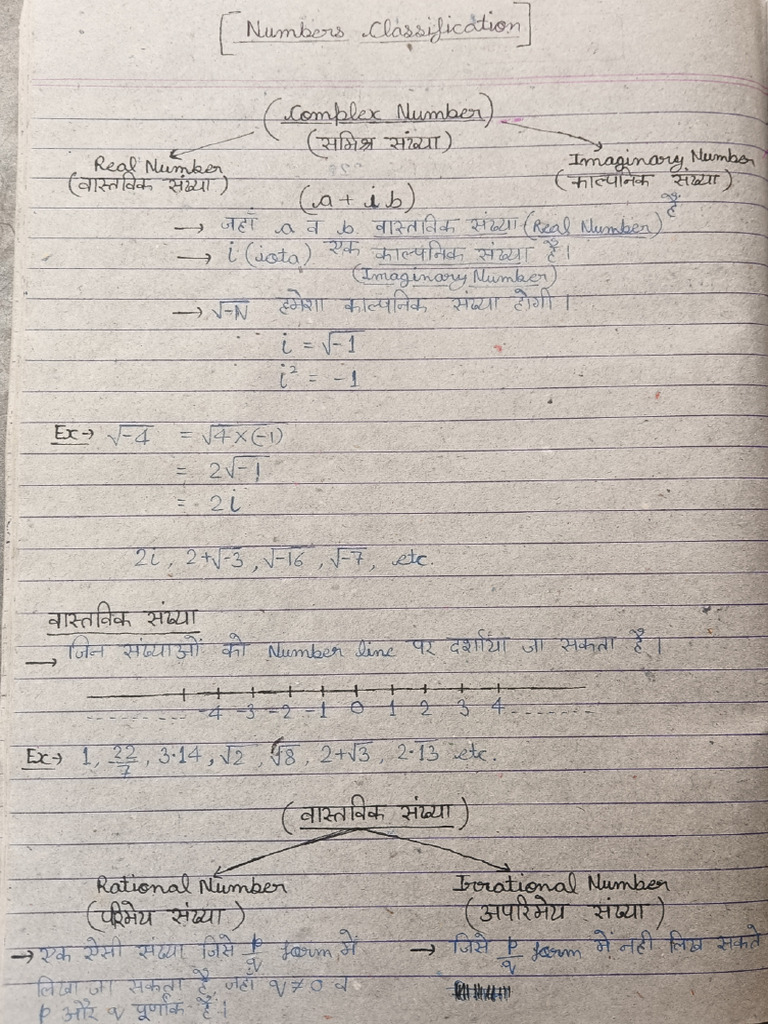 [Numbers Classification]
(Complex Number)
(समिश्र संख्या)
Real Number
(वास्तविक संख्या)
Imaginary Number
(काल्पनिक संख्या)
(a + ib)
→ जहाँ a व b वास्तविक संख्या (Real Number) हैं
→ i (iota) एक काल्पनिक संख्या है।
(Imaginary Number)
→ √-N हमेशा काल्पनिक संख्या होगी।
i = √-1
i² = -1
Ex→ √-4 = √4×(-1)
= 2√-1
= 2i
2i, 2+√-3, √-16, √-7, etc.
वास्तविक संख्या
→ जिन संख्याओं को Number line पर दर्शाया जा सकता है।
-4 -3 -2 -1 0 1 2 3 4
Ex→ 1, 22/7, 3.14, √2, √8, 2+√3, 2.13 etc.
(वास्तविक संख्या)
Rational Number
(परिमेय संख्या)
→ एक ऐसी संख्या जिसे p/q form में
लिखा जा सकता है, जहाँ q ≠ 0 व
p और q पूर्णांक हैं।
Irrational Number
(अपरिमेय संख्या)
→ जिसे p/q form में नही लिख सकते